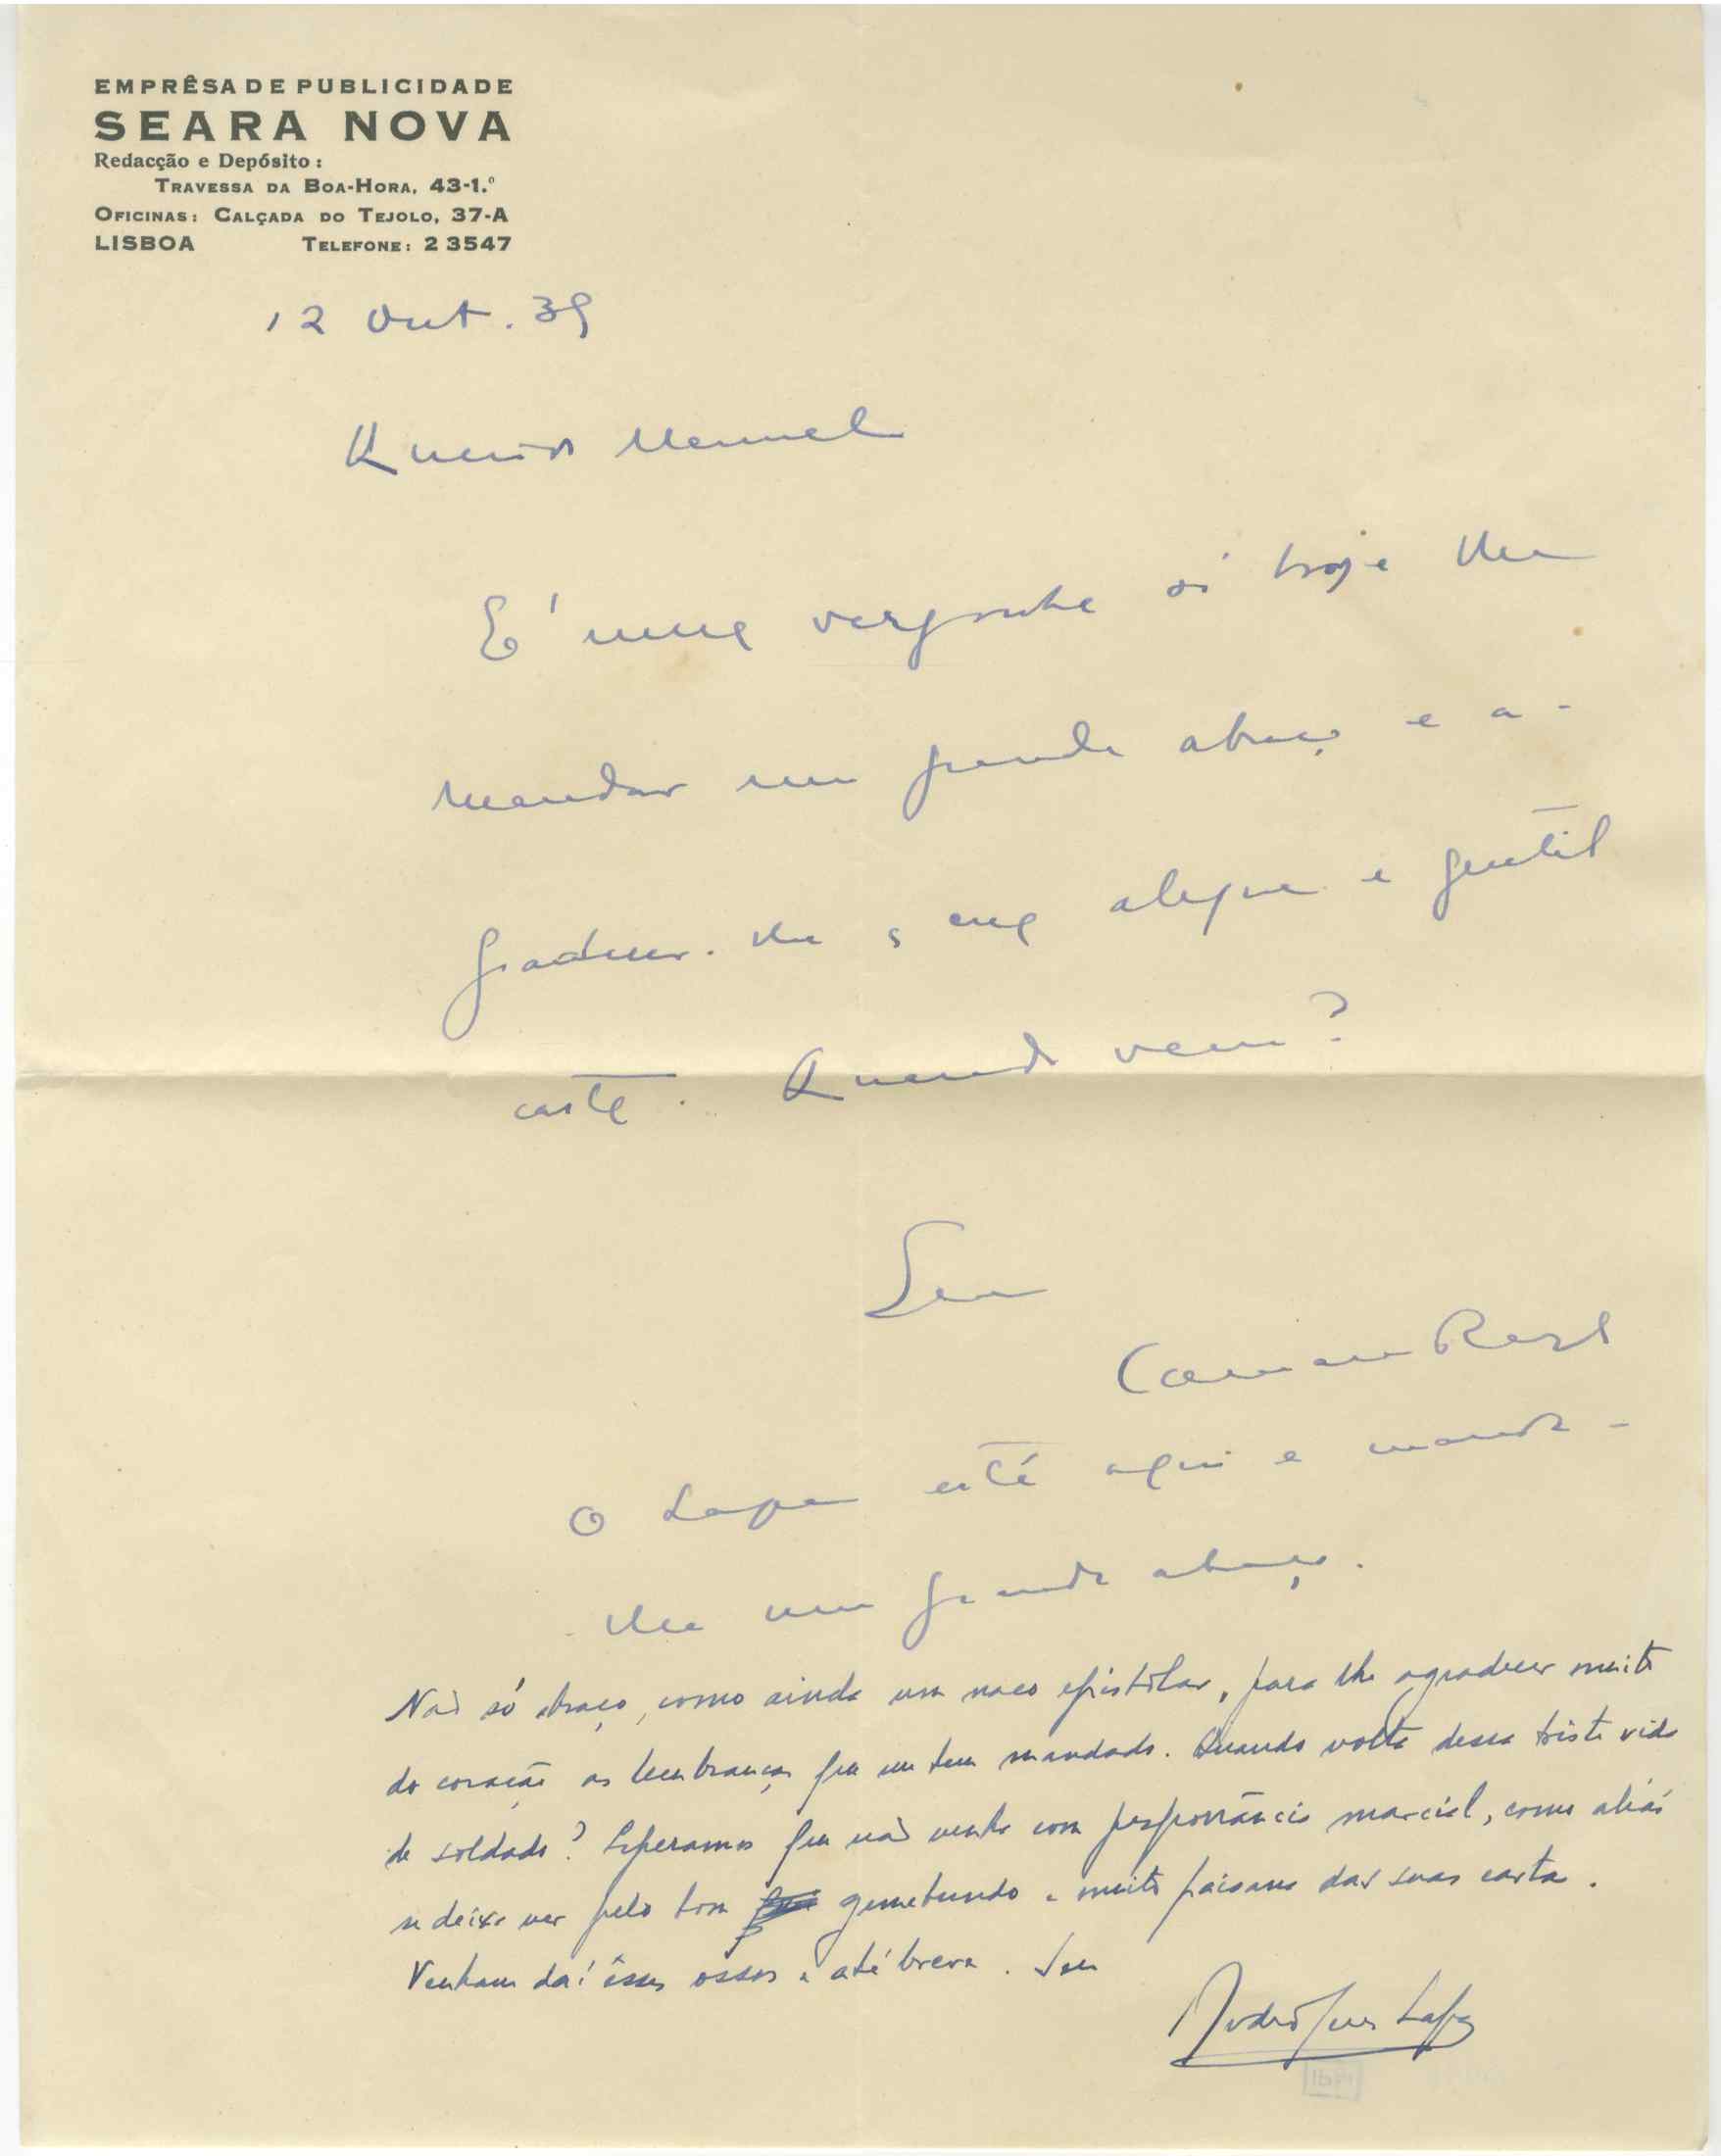 EMPRÊSA DE PUBLICIDADE
SEARA NOVA
Redacção e Depósito:
TRAVESSA DA BOA-HORA, 43-1.º
OFICINAS: CALÇADA DO TEJOLO, 37-A
LISBOA TELEFONE: 2 3547
12 Out. 39
Querido Manuel
É uma vergonha só hoje lhe
mandar um grande abraço e a-
gradecer-lhe a sua alegre e gentil
carta. Quando vem?
Seu
Camara Reys
O Lapa está aqui e manda-
lhe um grande abraço.
Não só abraço, como ainda um naco epistolar, para lhe agradecer muito
do coração as lembranças que me tem mandado. Quando volta dessa triste vida
de soldado? Esperamos que não venha com prosponância marcial, como aliás
se deixa ver pelo tom gemebundo e muito paisano das suas cartas.
Venham daí êsses ossos e até breve. Seu
Rodrigues Lapa